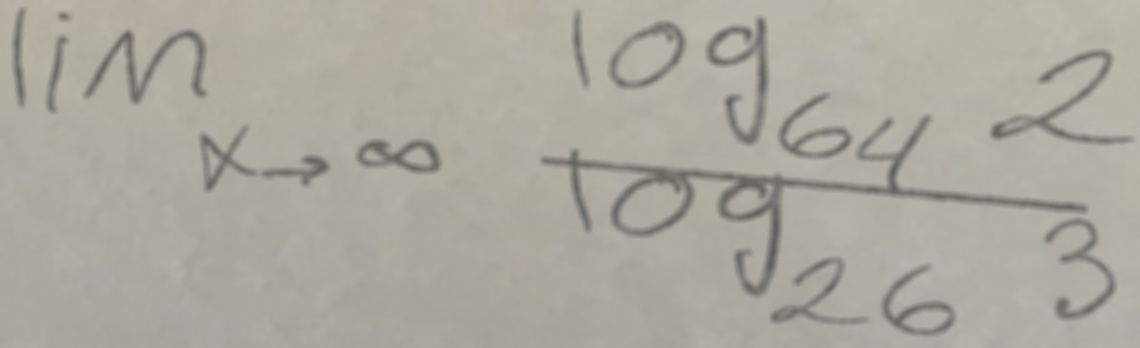 lim x→∞ log₆₄ 2 / log₂₆ 3